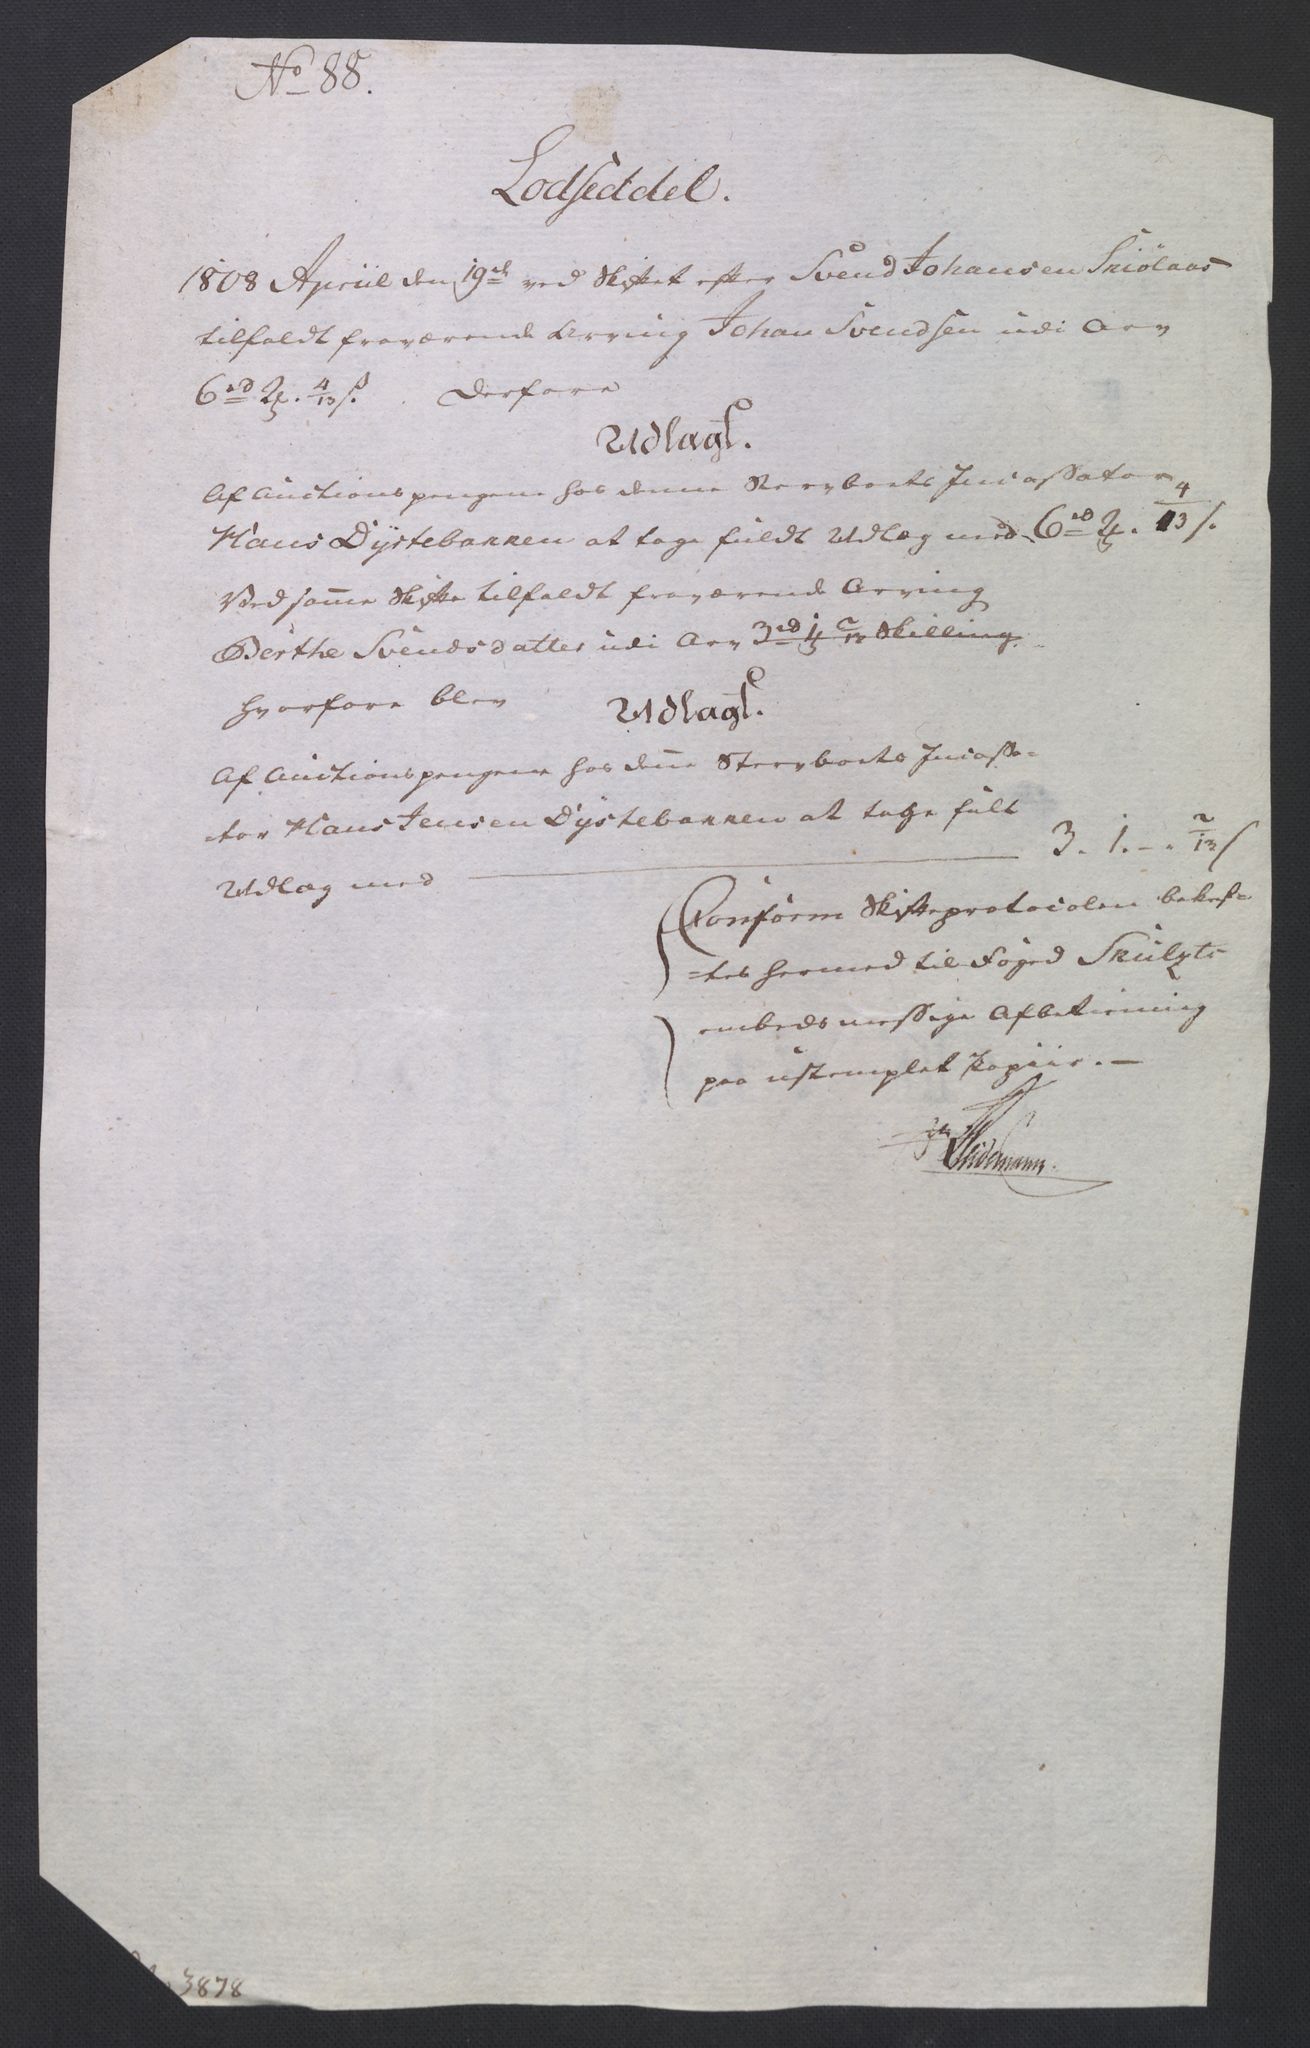 No 88.
Lodseddel.
1808 Apriil den 19de ved Skiftet efter Svend Johansen Skiölaas
tilfaldt fraværende Arving Johan Svendsen udi Arv
6rd 2 . 4/13 s. Derfore
Udlagt.
Af Auctionspengene hos denne Stervboets Incassator
Hans Dystebakken at tage fuldt Udlæg med 6rd 2 . 4/13 s.
Ved samme Skifte tilfaldt fraværende Arving
Berthe Svendsdatter udi Arv 3rd 1 2/13 Skilling.
hvorfore blev Udlagt.
Af Auctionspengene hos denne Sterrboets Incassa-
-tor Hans Jensen Dystebakken at tage fult
Udlæg med 3. 1. -. 2/13 s
Conform Skifteprotocolen bekref-
-tes hermed til Foged Skulzts
embedsmessige Afbetiening
paa ustemplet Papiir. -
3878